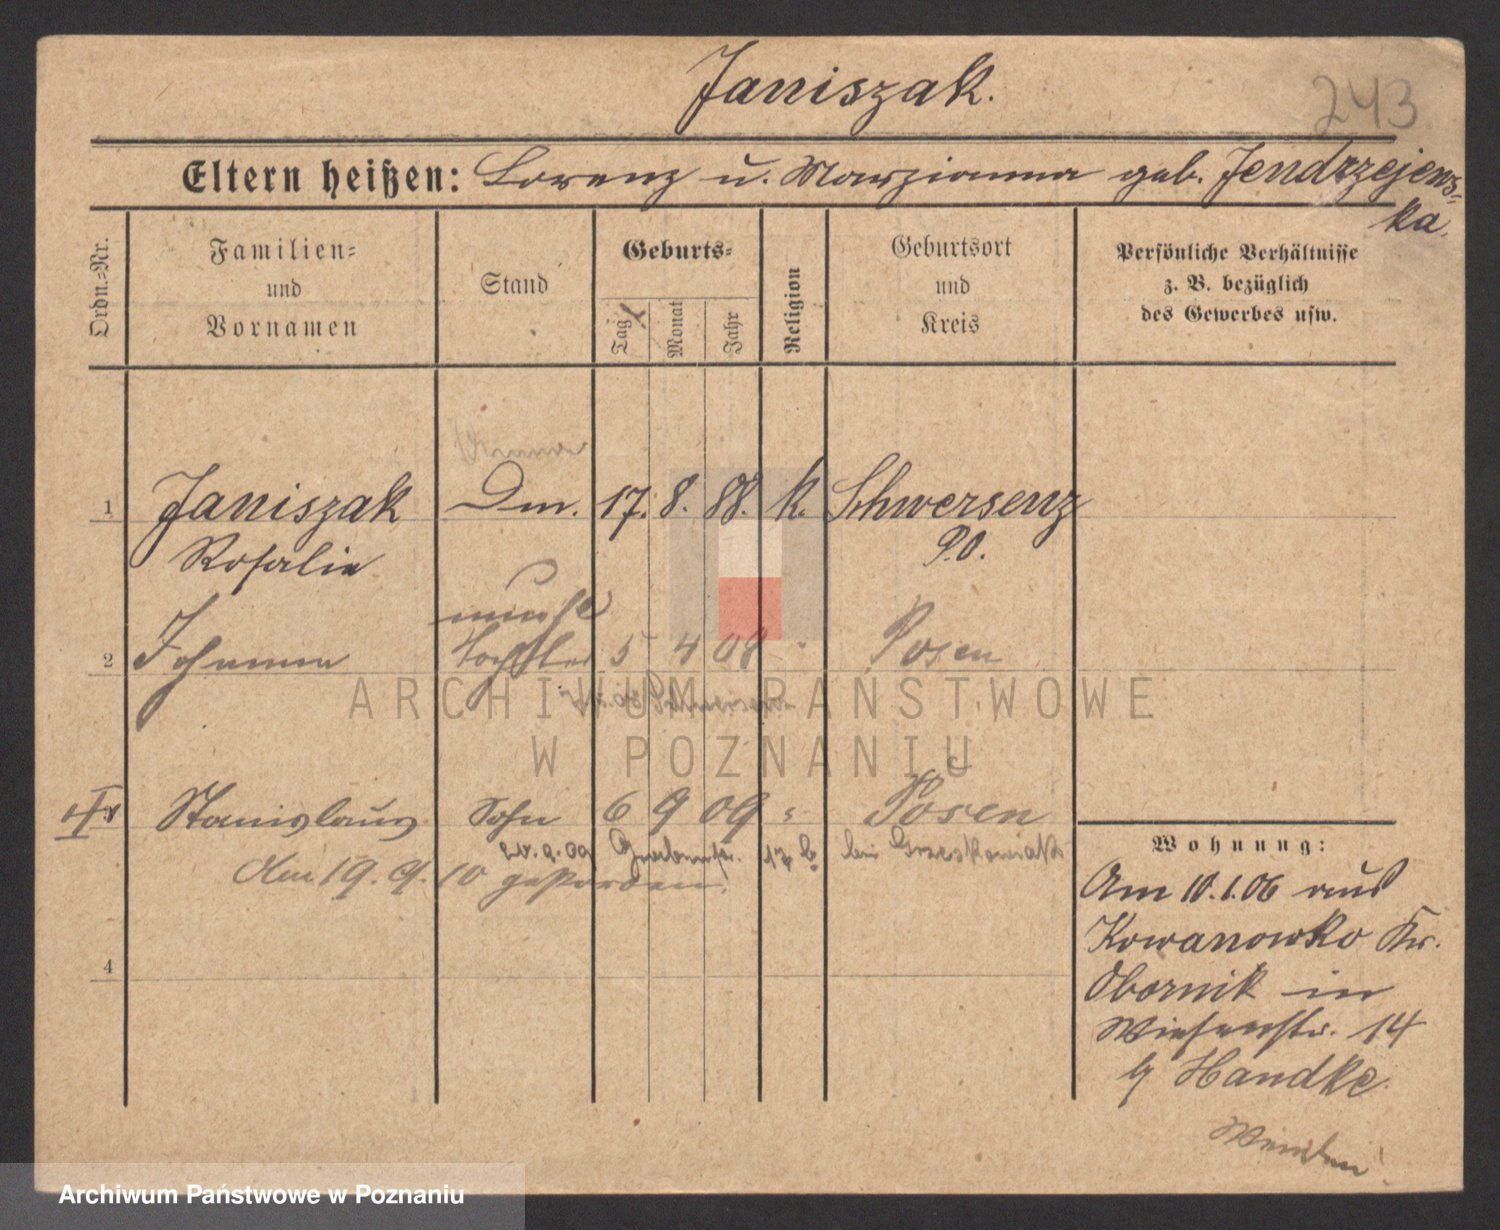 Janiszak.
243
Eltern heißen: Lorenz u. Marzianna geb. Jendrzejews=
ka.
Ordn.=Nr.
Familien=
und
Vornamen
Stand
Geburts=
Tag
Monat
Jahr
Religion
Geburtsort
und
Kreis
Persönliche Verhältnisse
z. B. bezüglich
des Gewerbes usw.
1 Janiszak Dm. 17. 8. 88. k. Schwersenz
Rosalie P.O.
unehl
2 Johanna Tochter 5 4 08 Posen
Stanislaus Sohn 6 9 09 = Posen
20.9.09 Grabenstr. 17 b bei Grzeskowiak
Am 19. 9. 10 gestorben.
4
Wohnung:
Am 10.1.06 aus
Kowanowko Kr.
Obornik in
Wiesenstr. 14
b/ Handke.
Wenden!
ARCHIWUM PAŃSTWOWE
W POZNANIU
Archiwum Państwowe w Poznaniu